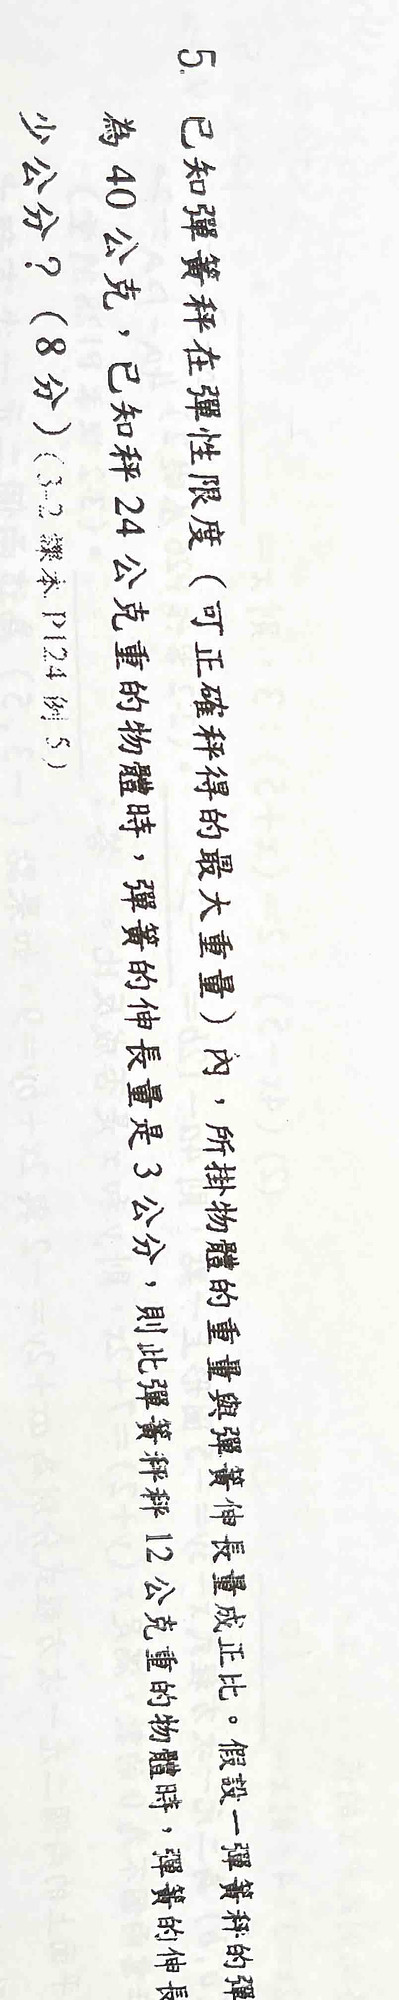 5. 已知彈簧秤在彈性限度(可正確秤得的最大重量)內,所掛物體的重量與彈簧伸長量成正比。假設一彈簧秤的彈
為 40 公克,已知秤 24 公克重的物體時,彈簧的伸長量是 3 公分,則此彈簧秤秤 12 公克重的物體時,彈簧的伸長
少公分?(8 分)(3-2 課本 P124 例 5)